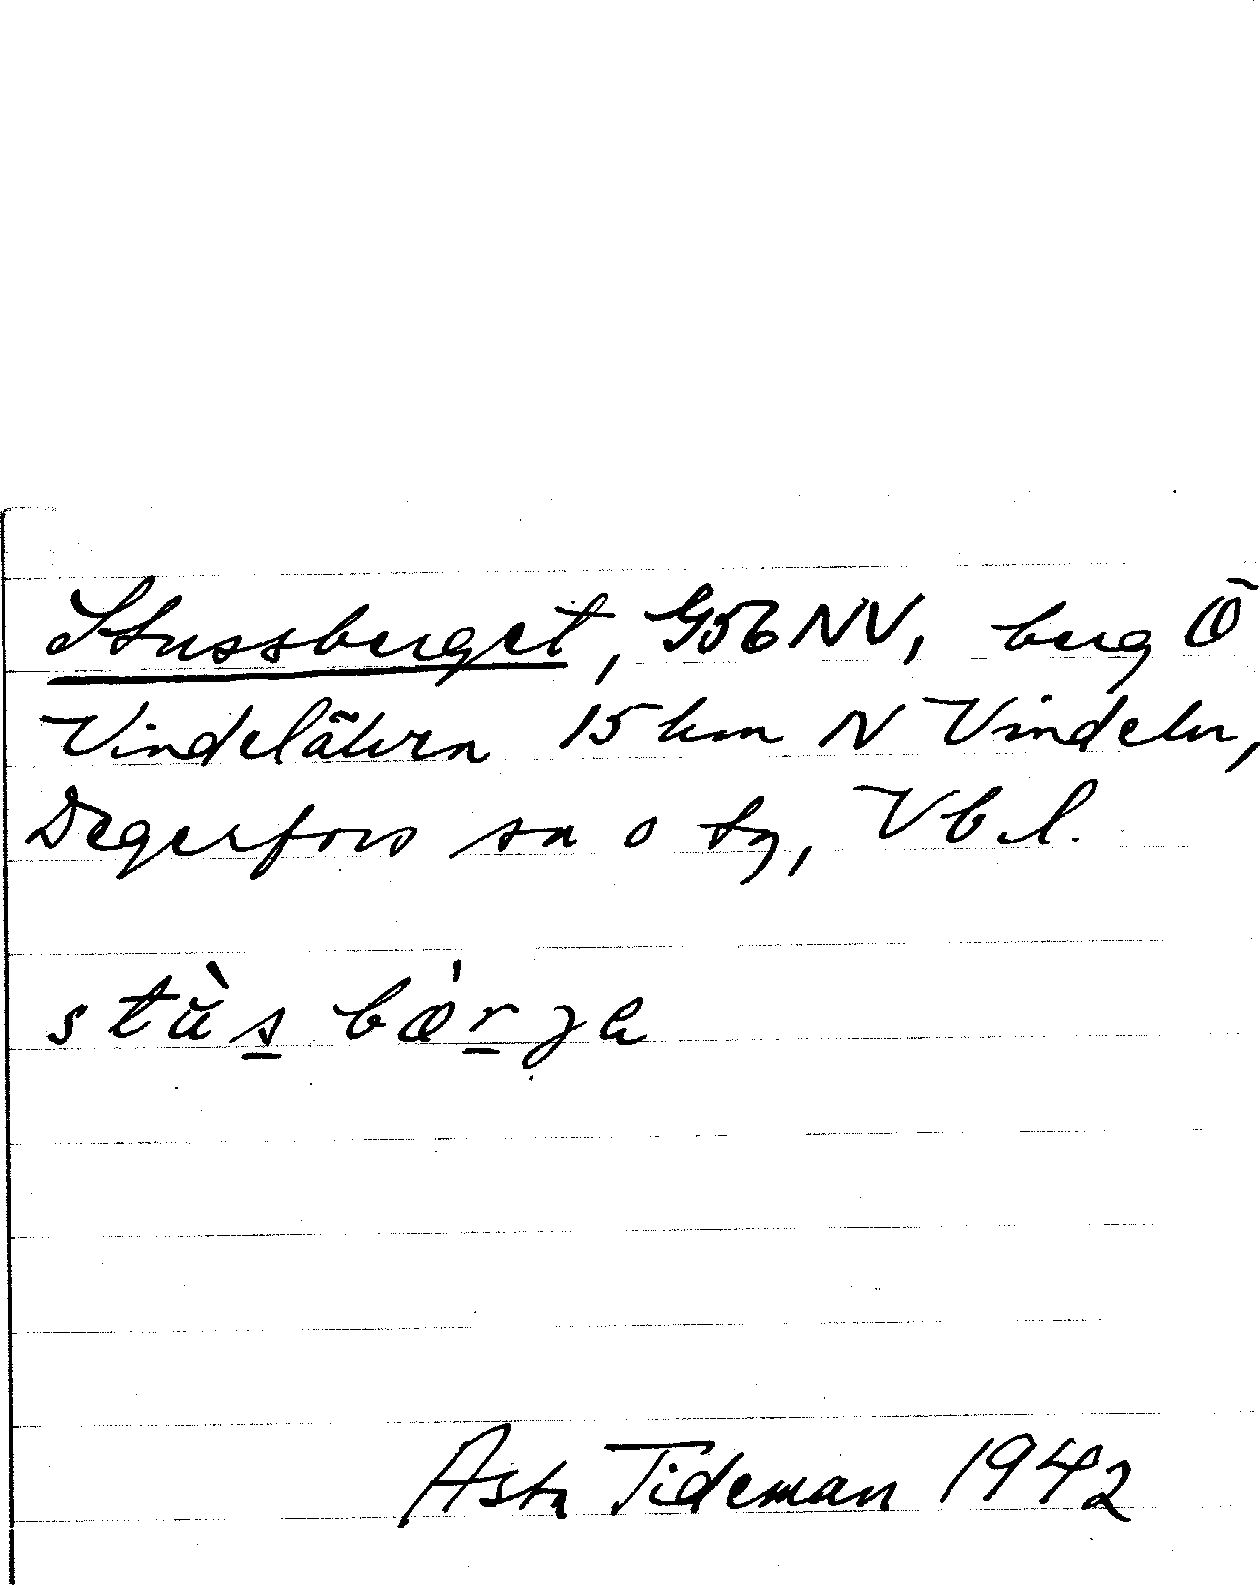 Stussberget, G56NV, berg Ö
Vindelälven 15 km N Vindeln,
Degerfors sn o tg, Vb.l.
Asta Tideman 1942